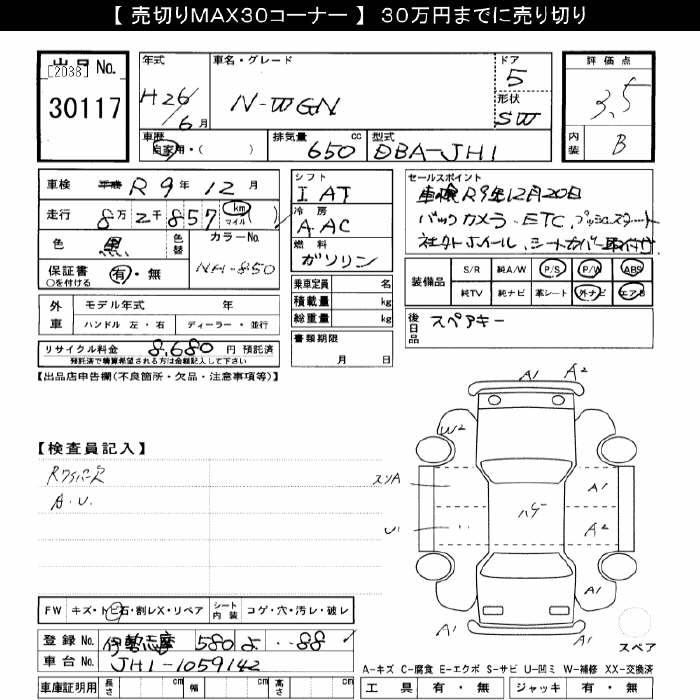 【 売切りMAX30コーナー 】 30万円までに売り切り
出品 No.
[2038]
30117
年式
H26/6月
車名・グレード
N-WGN
ドア
5
形状
SW
評価点
3.5
内装
B
車歴
自家用・( )
排気量 650 cc
型式
DBA-JH1
車検 R9年12月
走行 8万2千857 km マイル ( )
色 黒
色替
カラーNo.
NH-850
保証書 有・無
○を付ける
シフト
I AT
冷房
A.AC
燃料
ガソリン
乗車定員 名
積載量 kg
総重量 kg
書類期限
月 日
セールスポイント
車検R9年12月20日
バックカメラ・ETC、プッシュスタート
社外ホイール、シートカバー取付け
装備品
S/R 純A/W P/S P/W ABS
純TV 純ナビ 革シート 外ナビ エアB
後日品
スペアキー
外車
モデル年式 年
ハンドル 左・右 ディーラー・並行
リサイクル料金 8,680 円 預託済
預託済で精算希望される方は金額記入して下さい
【出品店申告欄(不良箇所・欠品・注意事項等)】
【検査員記入】
Rワイパー欠
A.U.
A1
A2
W2
スソA
A1
ハゲ
U1
A2
A1
スペア
FW キズ・トビ石・割レX・リペア
シート内装 コゲ・穴・汚レ・破レ
登録 No. 伊勢志摩 580 よ ・・88
車台 No. JH1-1059142
車庫証明用 長さ cm 幅 cm 高さ cm
A-キズ C-腐食 E-エクボ S-サビ U-凹ミ W-補修 XX-交換済
工具 有・無 ジャッキ 有・無